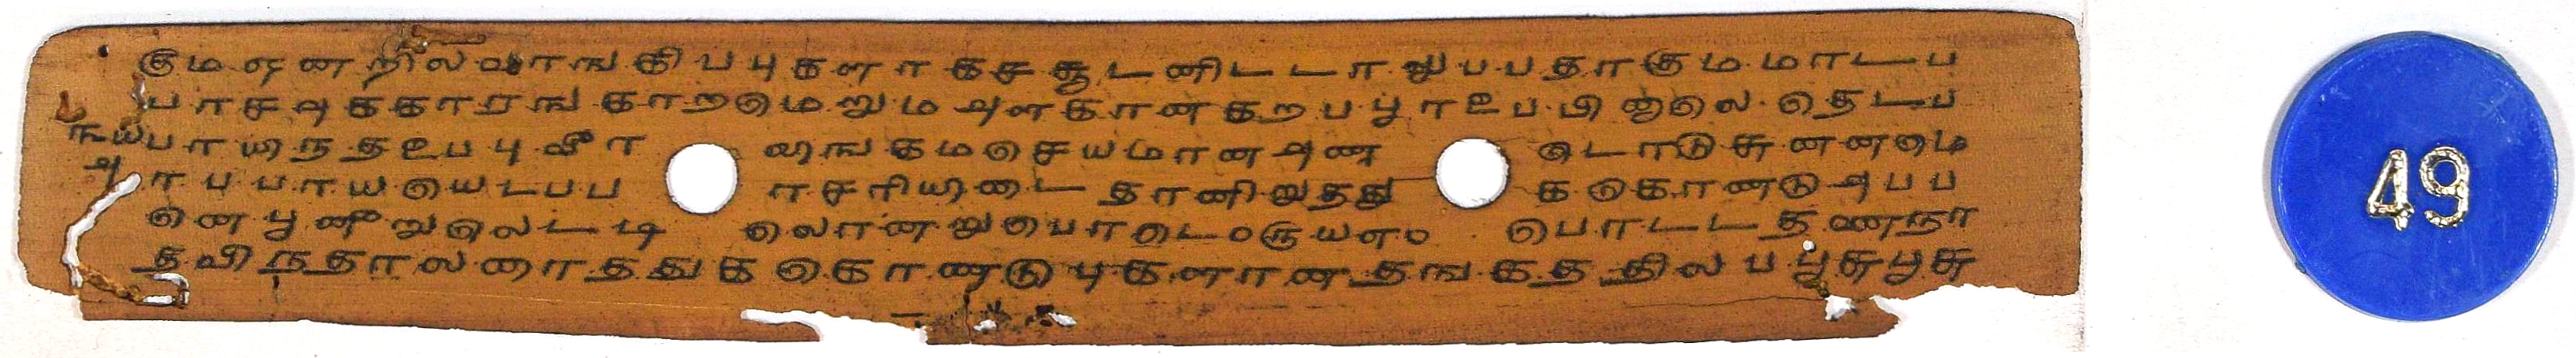 குமணனறிலவாஙகிபபுகளாகசசூடனிடடாறுபபதாகுமமாடப
பாசவுககாரஙகாறமெறுமஅளகானகறபபூரஉபபினுலெதெடப
நயபாயிநதஉபபுவீா லிஙகமசெயமானஅண டொடுசுனனமெ
அாபபாயயெடபப ாசரியனடைதானிறுதது ககொணடுஅபப
னெபூணீறுலெடடி லொனறுபொடெ௦ருயஎ௦ பொடடதணநா
தவிநதாலரைததுககொணடுபுகளானதஙகததிலபபூசுபூசு
49